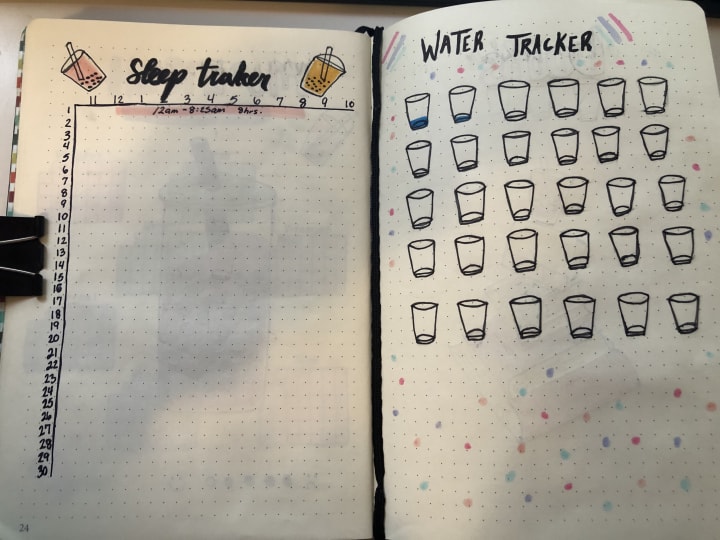 Sleep traker
11 12 1 2 3 4 5 6 7 8 9 10
12am - 8:25am 8hrs.
1
2
3
4
5
6
7
8
9
10
11
12
13
14
15
16
17
18
19
20
21
22
23
24
25
26
27
28
29
30
24
WATER TRACKER